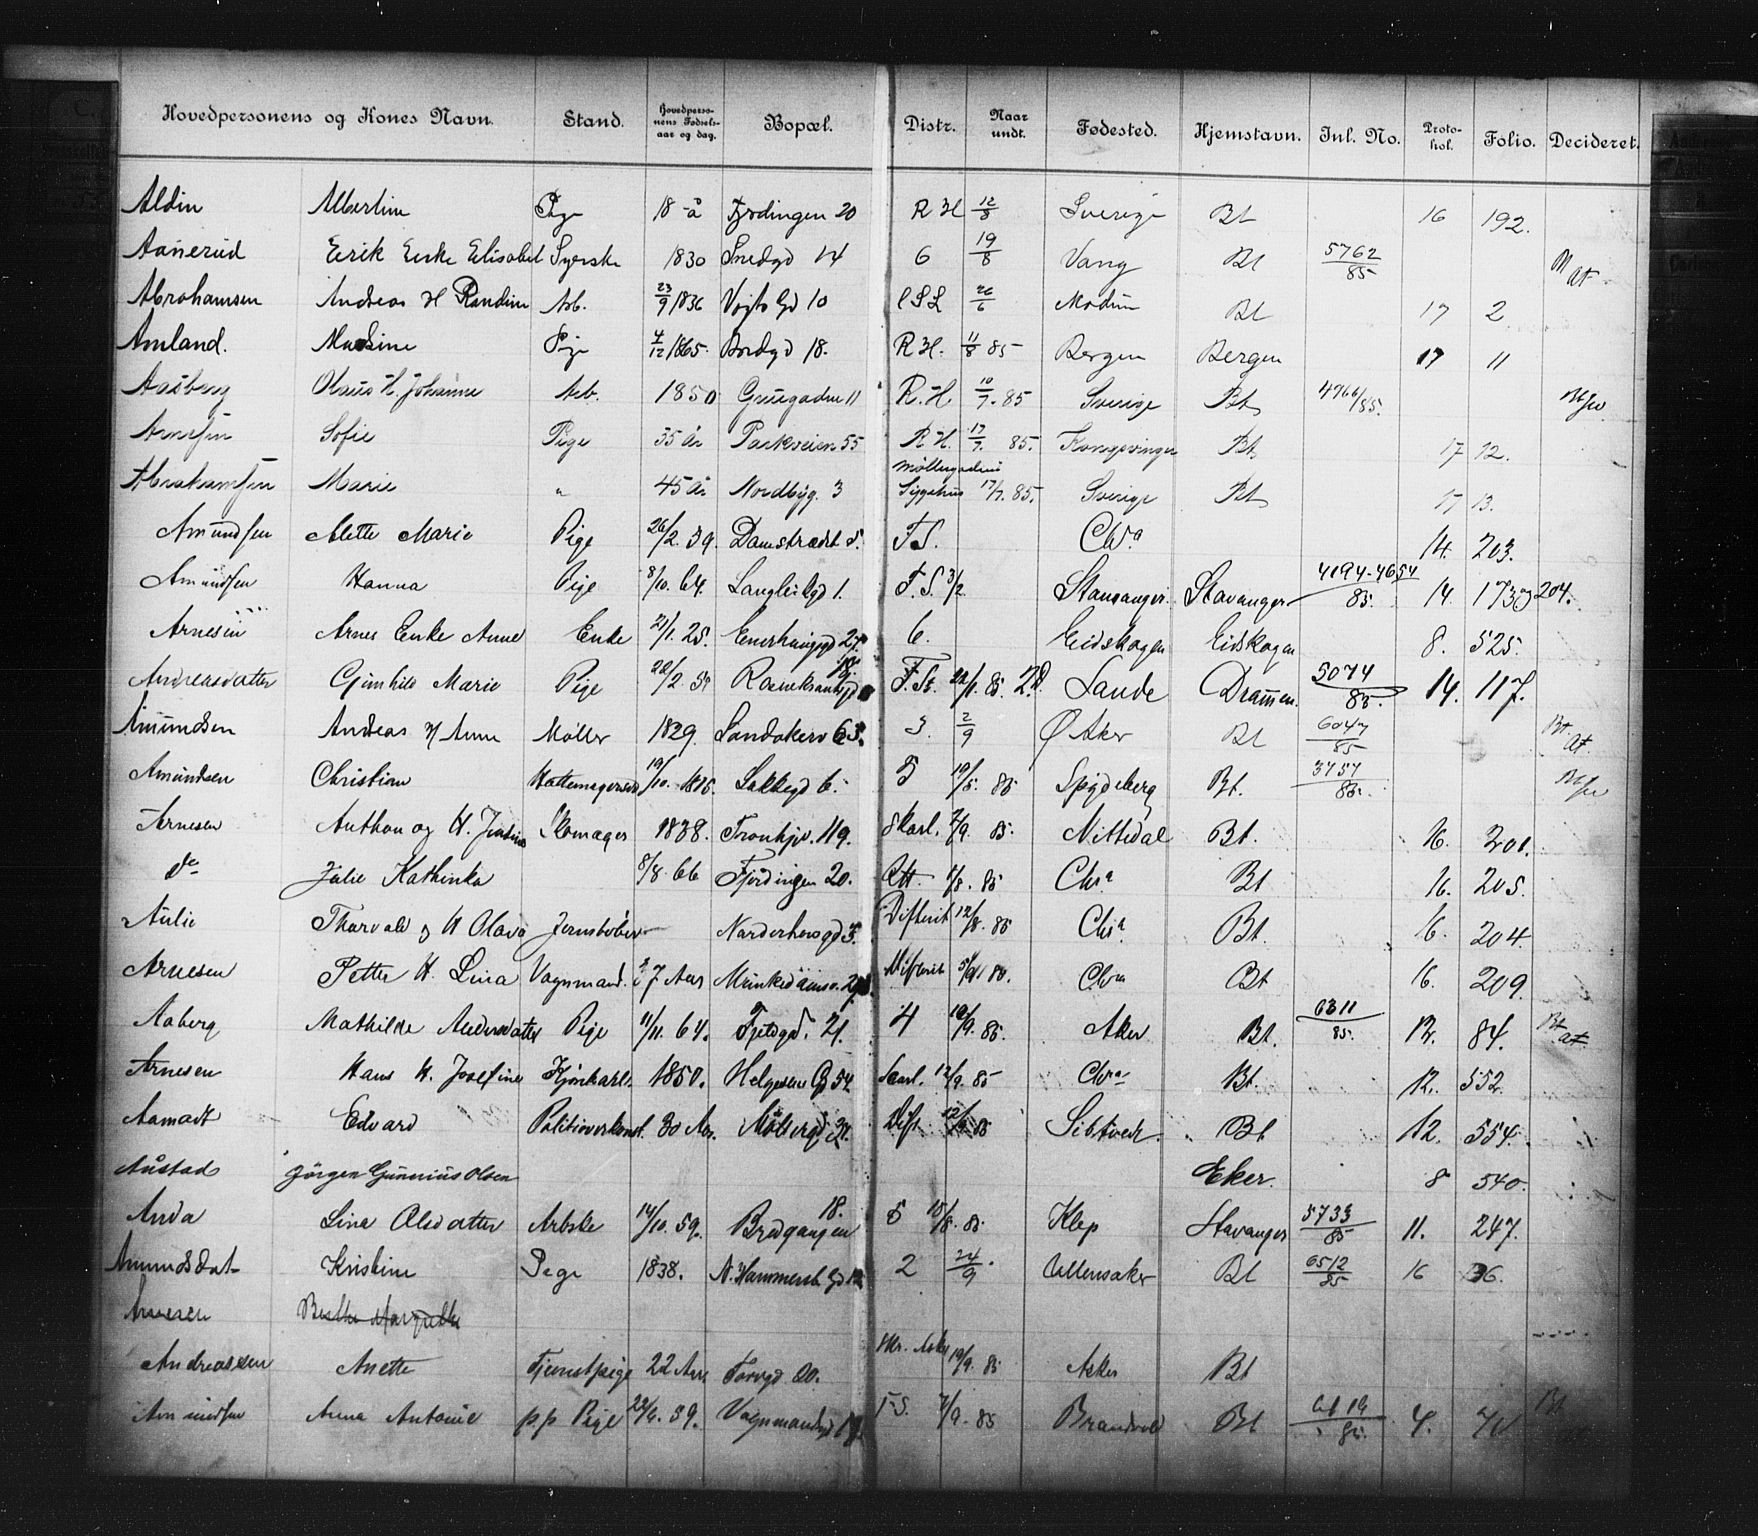 Hovedpersonens og Kones Navn. Stand. Hovedpersonens Fødselsaar og dag. Bopæl. Distr. Naar undt. Fødested. Hjemstavn. Inl. No. Protokol. Folio. Decideret.
Aldin Albertine Pige 18 å Fjerdingen 20 R H 12/8 Sverige Bt 16 192.
Aanerud Eirik Enke Elisabet Syerske 1830 Smedgd 14 6 19/8 Vang Bt 5762/85 at
Abrahamsen Andreas H Randine Arb. 23/9 1836 Vogts Gd 10 26/6 Modum Bt 17 2
Amland. Pige 4/12 1865. Bordgd 18. R H. 11/8 85 Bergen Bergen 17 11
Aasberg Olaus H. Johanne Arb. 1850 Gruegaden 11 R. H. 10/7. 85 Sverige Bt 4966/85.
Arnesen Sofie Pige 35 år Parkveien 55 R. H. 17/7. 85. Kongsvinger Bt 17 12.
Abrahamsen Marie " 45 år Nordbyg. 3 Møllergadens Sygehus 17/7. 85. Sverige Bt 17 13.
Amundsen Alette Marie Pige 26/2. 39. Damstrædet 5. F S. Chr.a 14. 203.
Amundsen Hanna Pige 8/10. 64. Langleikgd 1. F. S. 3/2 Stavanger. Stavanger 4194-4654/85. 14. 173 og 204.
Arnesen Arnes Enke Anne Enke 21/1. 25. Enerhauggd 27. 6. Eidskogen Eidskogen 8. 525.
Andersdatter Gunhild Marie Pige 22/2. 59 Rosenkrantzgd 19. F. St. 22/1. 85. Sande Drammen. 5074/85. 14. 117.
Amundsen Andreas H Anne Møller 1829. Sandakerv 63. 3. 2/9 Ø Aker Bt 6047/85 Bt at.
Amundsen Christian Hattemagersvend 19/10. 1815. Lakkegd 6. 5 19/5. 85 Spydeberg Bt. 3757/85.
Arnesen Anthon og H. Skomager 1838. Tronhjv. 119. Skarl. 7/9. 85. Nittedal Bt. 16. 201.
do Julie Kathinka 8/8. 66 Fjerdingen 20. 7/8. 85 Chr.a Bt 16. 205.
Aulie Thorvald og H Olava Difterit 12/8. 85 Chr.a Bt. 16. 204.
Arnesen Petter H. Lina Vognmand. 27 Aar Munkedamsv. Difterit Chra Bt 16. 209.
Aaberg Mathilde Andersdatter Pige 11/11. 64. Fjeldgd. 21. 4 19/9. 85. Aker Bt. 6311/85. 12. 84. Bt at.
Arnesen Hans H. Josefine 1850. Helgesens G 54 Scarl. 12/9. 85 Chra Bt. 12. 552.
Aamodt Edvard Politioverkonst. 30 Aar. Møllergd. Dift. 12/9 85 Bt 12. 554.
Austad Jørgen Gunnius Olsen Eker. 8 540.
Anda Lina Olsdatter Arbske 14/10. 59. Bredgangen 18. 5 18/8. 85. Klep Stavanger 5733/85 11. 247.
Amundsdat Kristine Pige 1838. N. Hammersb. Gd 2 24/9. Ullensaker Bt 6512/85 16 36.
Arnesen Berthe Margrethe
Andreassen Anette Tjenstpige 22 Aar. Torvgd. 20. 19/9. 85 Asker Bt
Amundsen Anna Antonie p.p Pige 59. Vognmandsgd F.S. 7/9. 85 Brandvold Bt 4. Bt